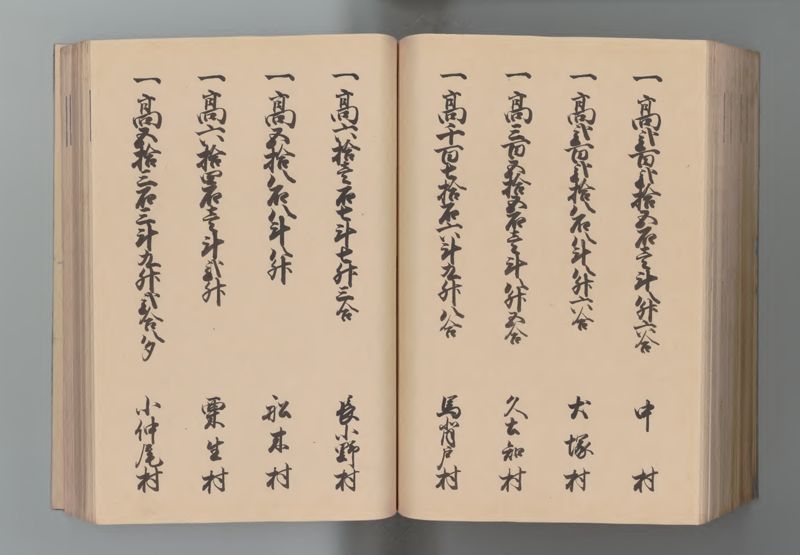 一高弐百弐拾五石壱斗八升六合 中村
一高弐百弐拾八石八斗八升六合 犬塚村
一高三百五拾五石壱斗八升五合 久知村
一高千百七拾石六斗九升八合 馬背戸村
一高六拾壱石七斗七升三合 長小野村
一高五拾八石八斗八升 松本村
一高六拾四石壱斗弐升 粟生村
一高五拾三石三斗九升弐合八夕 小仲尾村